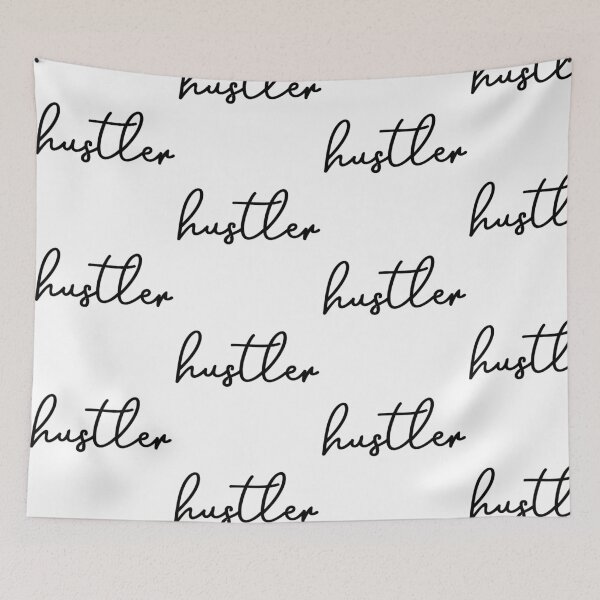 hustler
hustl
hustler
hustler
hustler
hustl
hustler
hustler
hustler
hustl
hustler
hustler
hustler
hustl